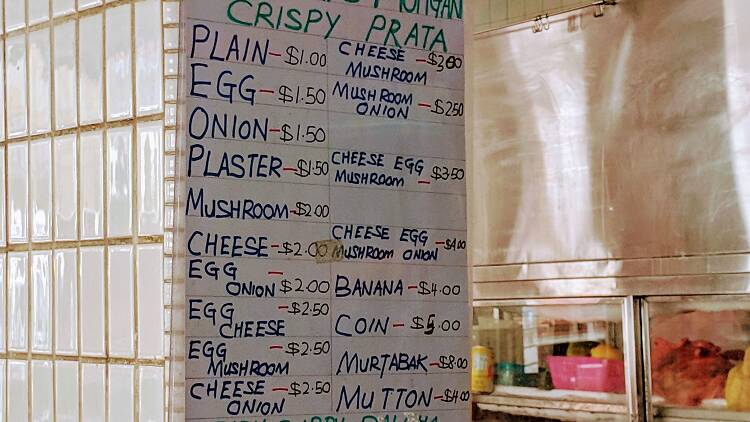 CRISPY PRATA
PLAIN - $1.00
EGG - $1.50
ONION - $1.50
PLASTER - $1.50
MUSHROOM - $2.00
CHEESE - $2.00
EGG
ONION - $2.00
EGG - $2.50
CHEESE
EGG - $2.50
MUSHROOM
CHEESE - $2.50
ONION
CHEESE - $3.00
MUSHROOM
MUSHROOM - $2.50
ONION
CHEESE EGG
MUSHROOM - $3.50
CHEESE EGG - $4.00
MUSHROOM ONION
BANANA - $4.00
COIN - $5.00
MURTABAK - $8.00
MUTTON - $4.00